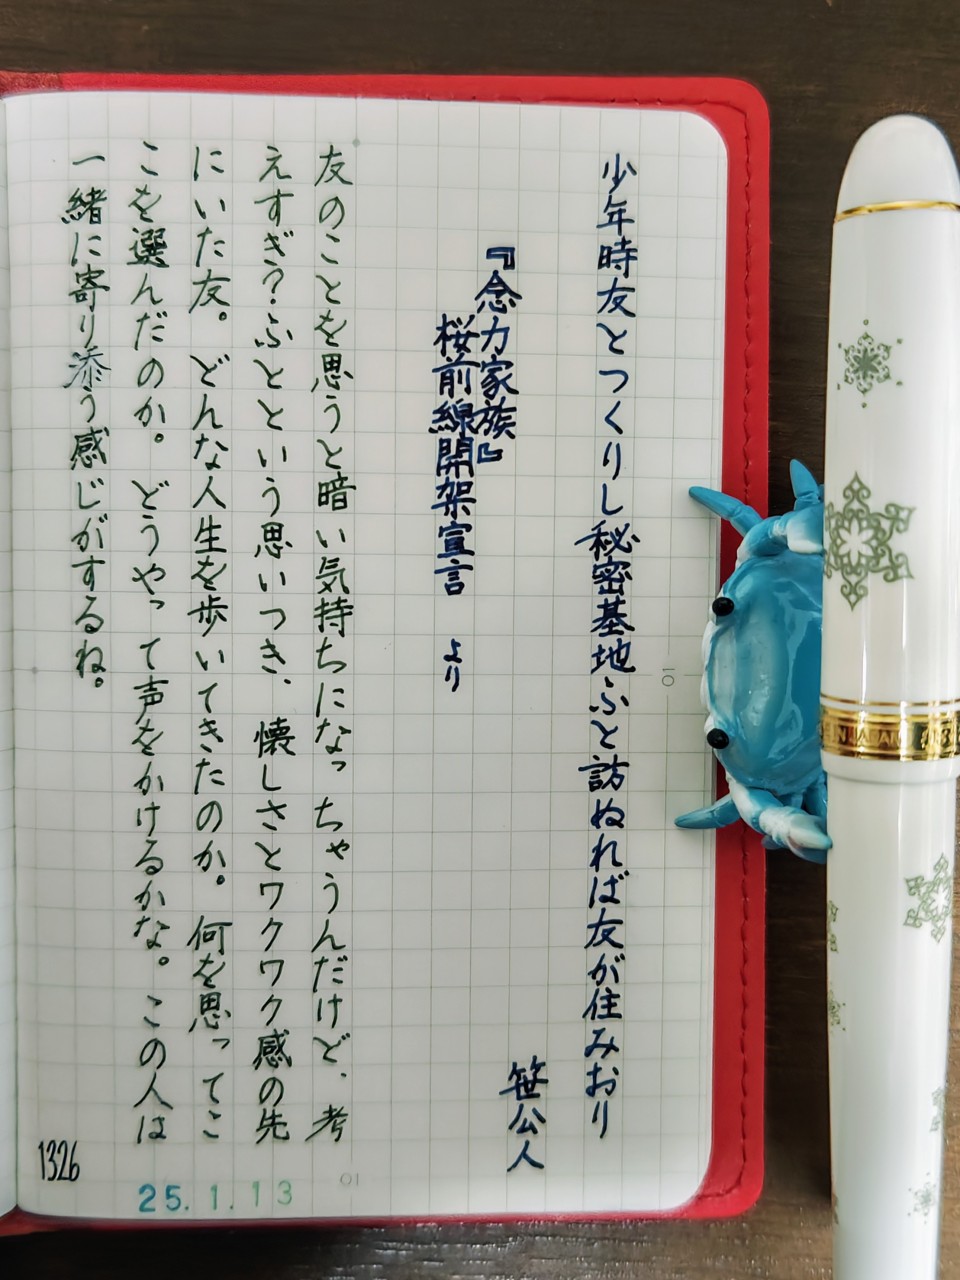 少年時友とつくりし秘密基地ふと訪ぬれば友が住みおり
笹公人
『念力家族』
桜前線開架宣言 より
友のことを思うと暗い気持ちになっちゃうんだけど、考
えすぎ？ふとという思いつき、懐しさとワクワク感の先
にいた友。どんな人生を歩いてきたのか。何を思ってこ
こを選んだのか。どうやって声をかけるかな。この人は
一緒に寄り添う感じがするね。
1326
25.1.13
10